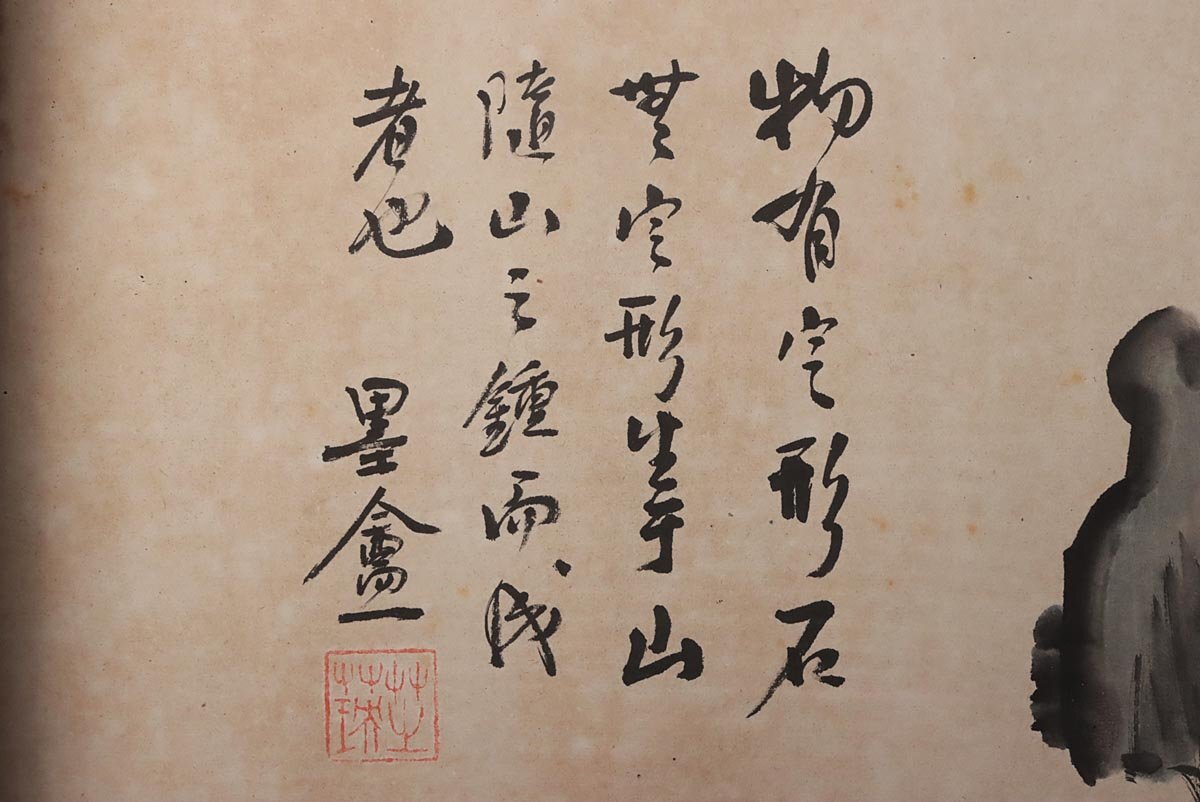 物有定形石
無定形生乎山
隨山之鍾而成
者也 墨盦